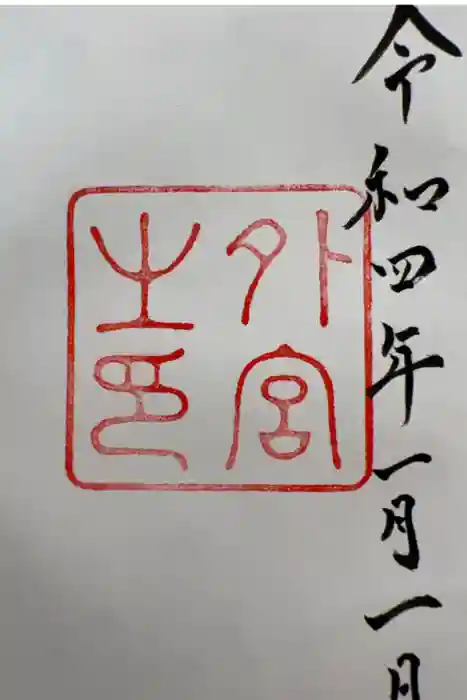 令和四年一月一日
外宮
之印